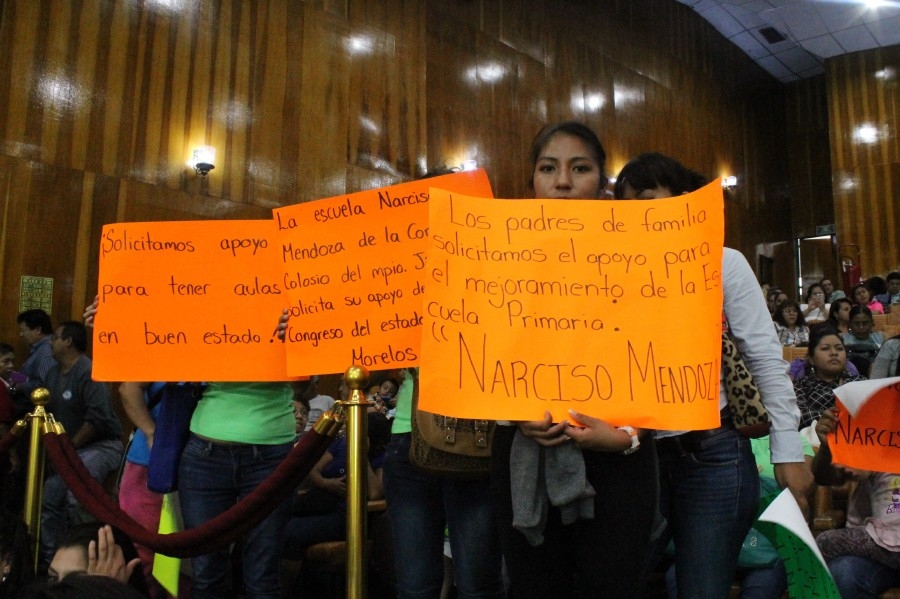 ¡Solicitamos apoyo
para tener aulas
en buen estado.!
La escuela Narciso
Mendoza de la
Colosio del mpio.
solicita su apoyo
Congreso del estado
Morelos
Los padres de familia
solicitamos el apoyo para
el mejoramiento de la Es
cuela Primaria.
"NARCISO MENDOZ
NARCISO